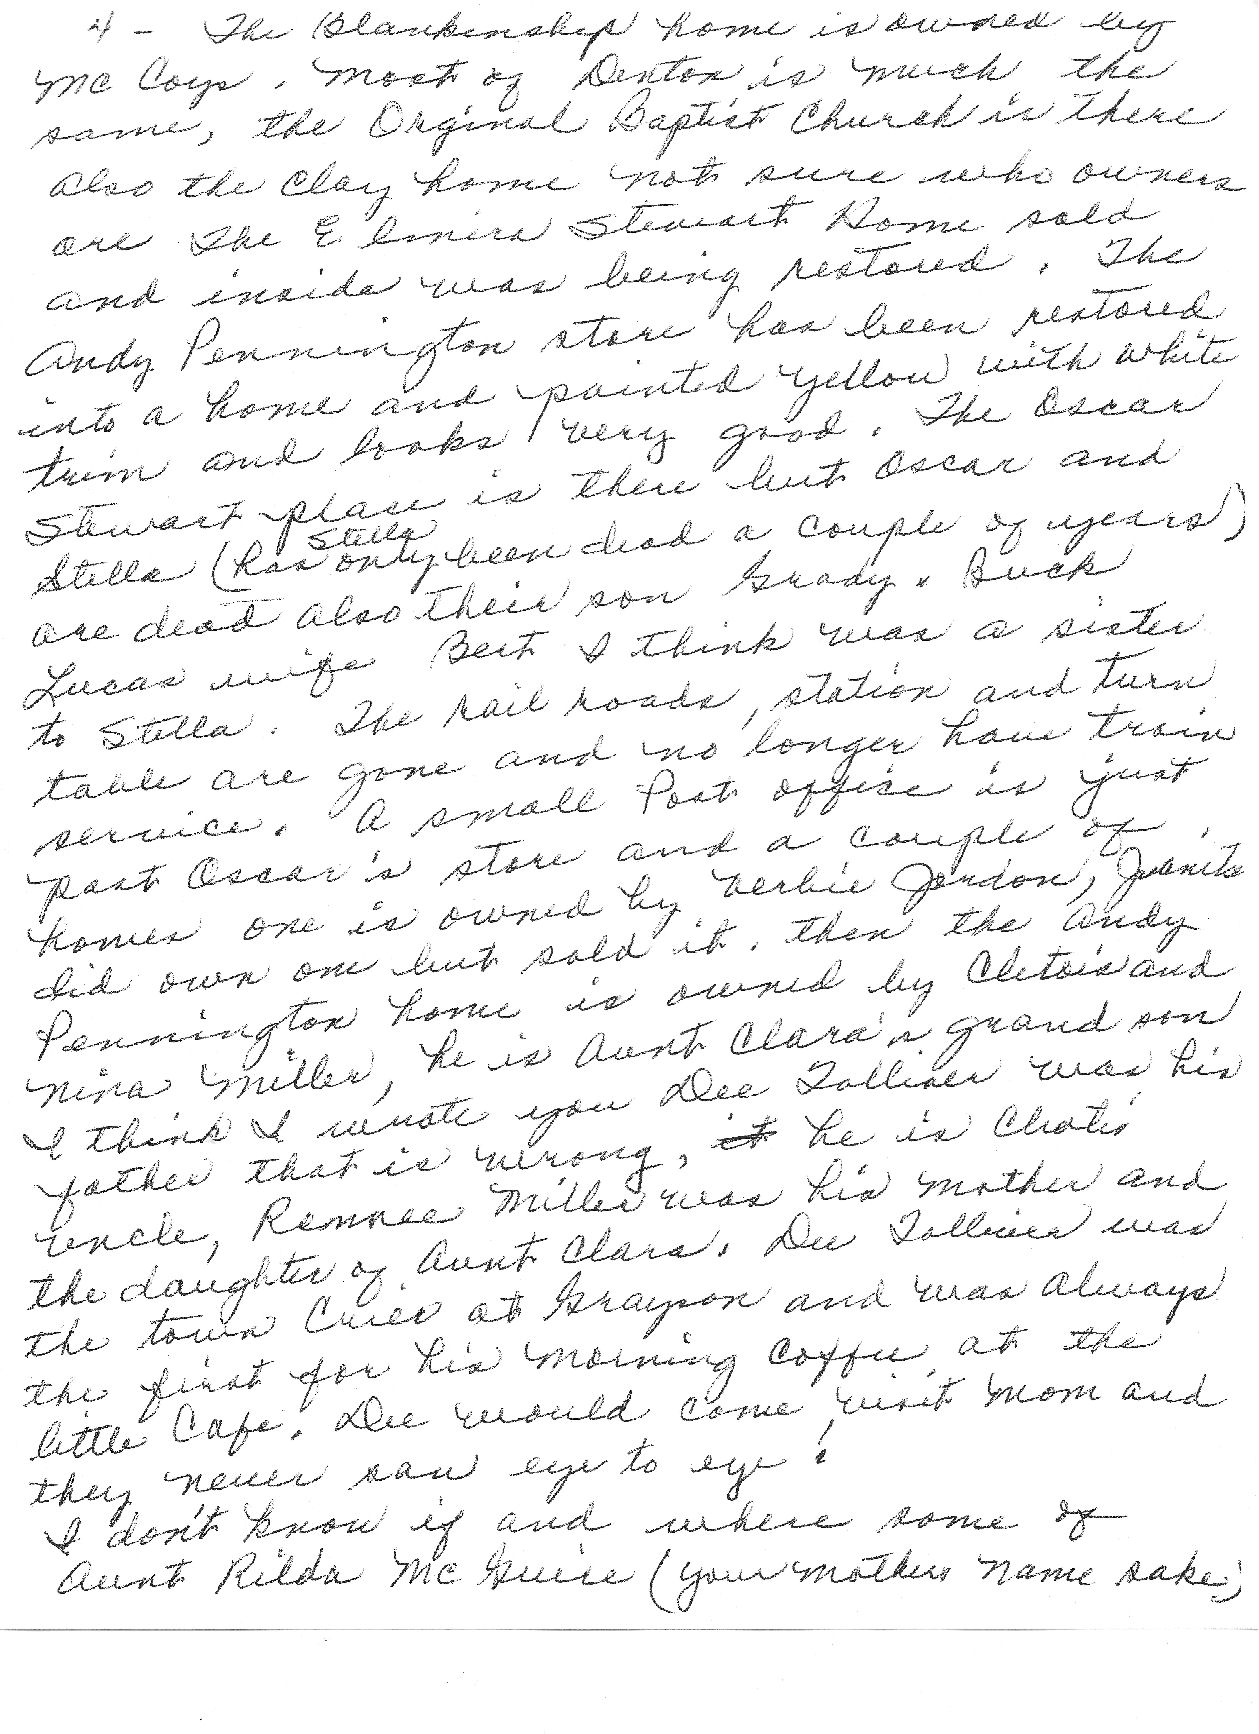 4 - The Blankenship home is owned by
Mc Coys. Most of Denton is much the
same, the Orginal Baptist Church is there
also the Clay home not sure who owners
are The Elmira Stewart Home sold
and inside was being restored. The
Andy Pennington store has been restored
into a home and painted yellow with white
trim and looks very good. The Oscar
Stewart place is there but Oscar and
Stella
Stella (has only been dead a couple of years)
are dead also their son Grady. Buck
Lucas wife Bert I think was a sister
to Stella. The rail roads, station and turn
table are gone and no longer have train
service. A small Post office is just
past Oscar's store and a couple of
homes one is owned by Verbie Jordon, Juanita
did own one but sold it. then the Andy
Pennington home is owned by and
Nina Miller, he is Aunt Clara's grand son
I think I wrote you Dee Tolliver was his
father that is wrong, it he is
uncle, Miller was his mother and
the daughter of Aunt Clara. Dee Tolliver was
the town Crier at Grayson and was always
the first for his morning coffee at the
little Cafe. Dee would come visit Mom and
they never saw eye to eye!
I don't know if and where some of
Aunt Rilda Mc Guire (your mothers name sake)